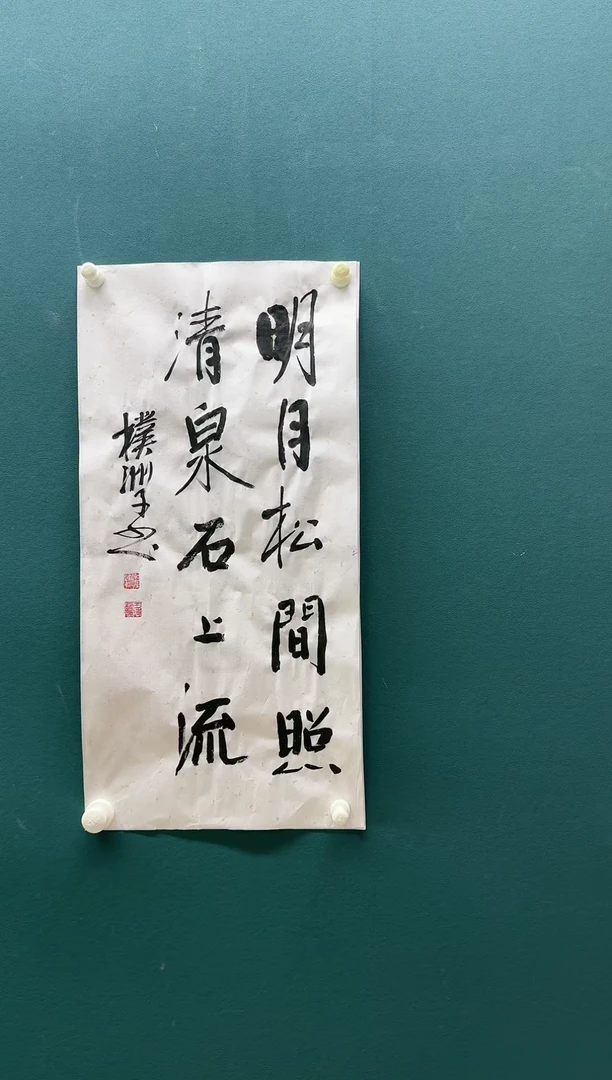 明月松間照
清泉石上流
樸洲子书